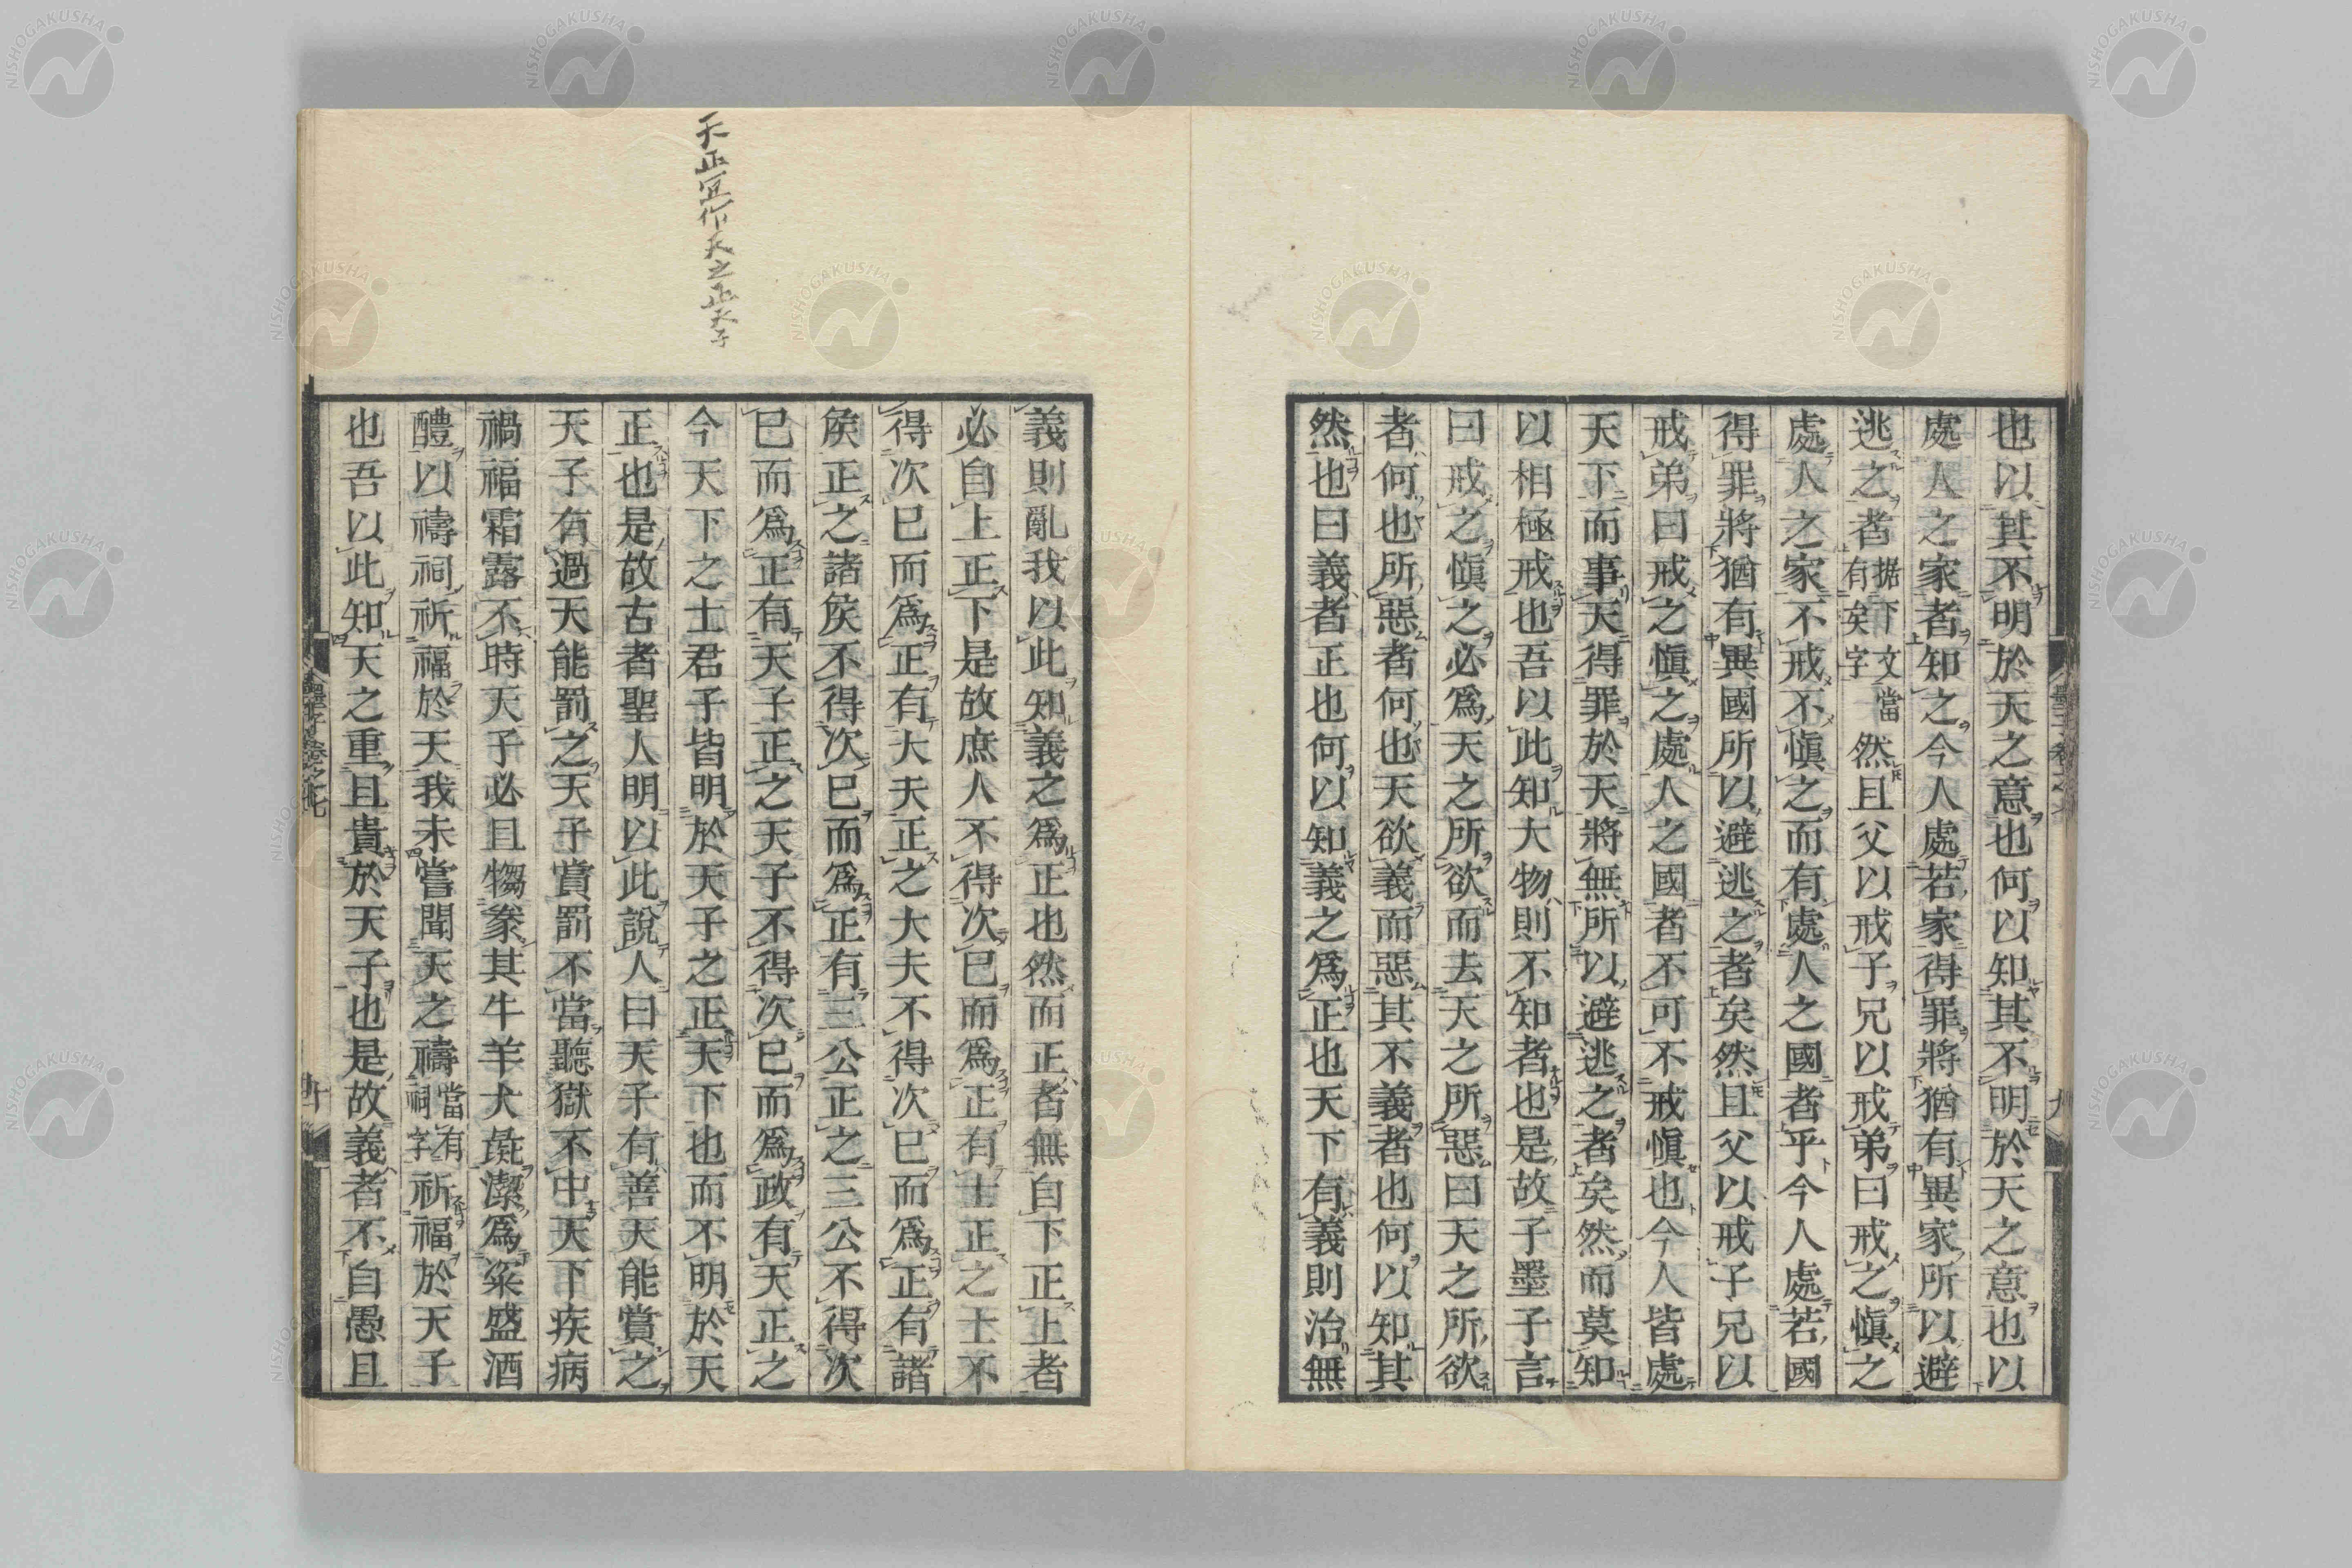 也以其不明於天之意也何以知其不明於天之意也以
處人之家者知之今人處若家得罪將猶有異家所以避
逃之者据下文當有矣字然且父以戒子兄以戒弟曰戒之愼之
處人之家不戒不愼之而有處人之國者乎今人處若國
得罪將猶有異國所以避逃之者矣然且父以戒子兄以
戒弟曰戒之愼之處人之國者不可不戒愼也今人皆處
天下而事天得罪於天將無所以避逃之者矣然而莫知
以相極戒也吾以此知大物則不知者也是故子墨子言
曰戒之愼之必爲天之所欲而去天之所惡曰天之所欲
者何也所惡者何也天欲義而惡其不義者也何以知其
然也曰義者正也何以知義之爲正也天下有義則治無
義則亂我以此知義之爲正也然而正者無自下正上者
必自上正下是故庶人不得次已而爲正有士正之士不
得次已而爲正有大夫正之大夫不得次已而爲正有諸
侯正之諸侯不得次已而爲正有三公正之三公不得次
已而爲正有天子正之天子不得次已而爲政有天正之
今天下之士君子皆明於天子之正天下也而不明於天
正也是故古者聖人明以此說人曰天子有善天能賞之
天子有過天能罰之天子賞罰不當聽獄不中天下疾病
禍福霜露不時天子必且犓豢其牛羊犬彘潔爲粢盛酒
醴以禱祠祈福於天我未嘗聞天之禱當有祠字祈福於天子
也吾以此知天之重且貴於天子也是故義者不自愚且
天正宜作天之正天子
墨子卷之七
九
墨子卷之七
十
NISHOGAKUSHA
NISHOGAKUSHA
NISHOGAKUSHA
NISHOGAKUSHA
NISHOGAKUSHA
NISHOGAKUSHA
NISHOGAKUSHA
NISHOGAKUSHA
NISHOGAKUSHA
NISHOGAKUSHA
NISHOGAKUSHA
NISHOGAKUSHA